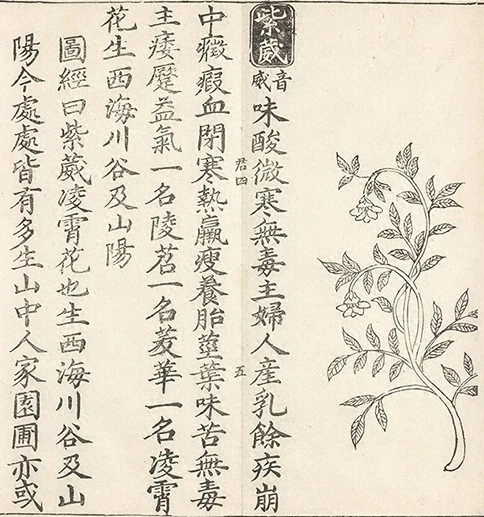 紫葳音威味酸微寒無毒主婦人產乳餘疾崩
君四
五
中癥瘕血閉寒熱羸瘦養胎莖葉味苦無毒
主痿躄益氣一名陵苕一名茇華一名凌霄
花生西海川谷及山陽
圖經曰紫葳凌霄花也生西海川谷及山
陽今處處皆有多生山中人家園圃亦或